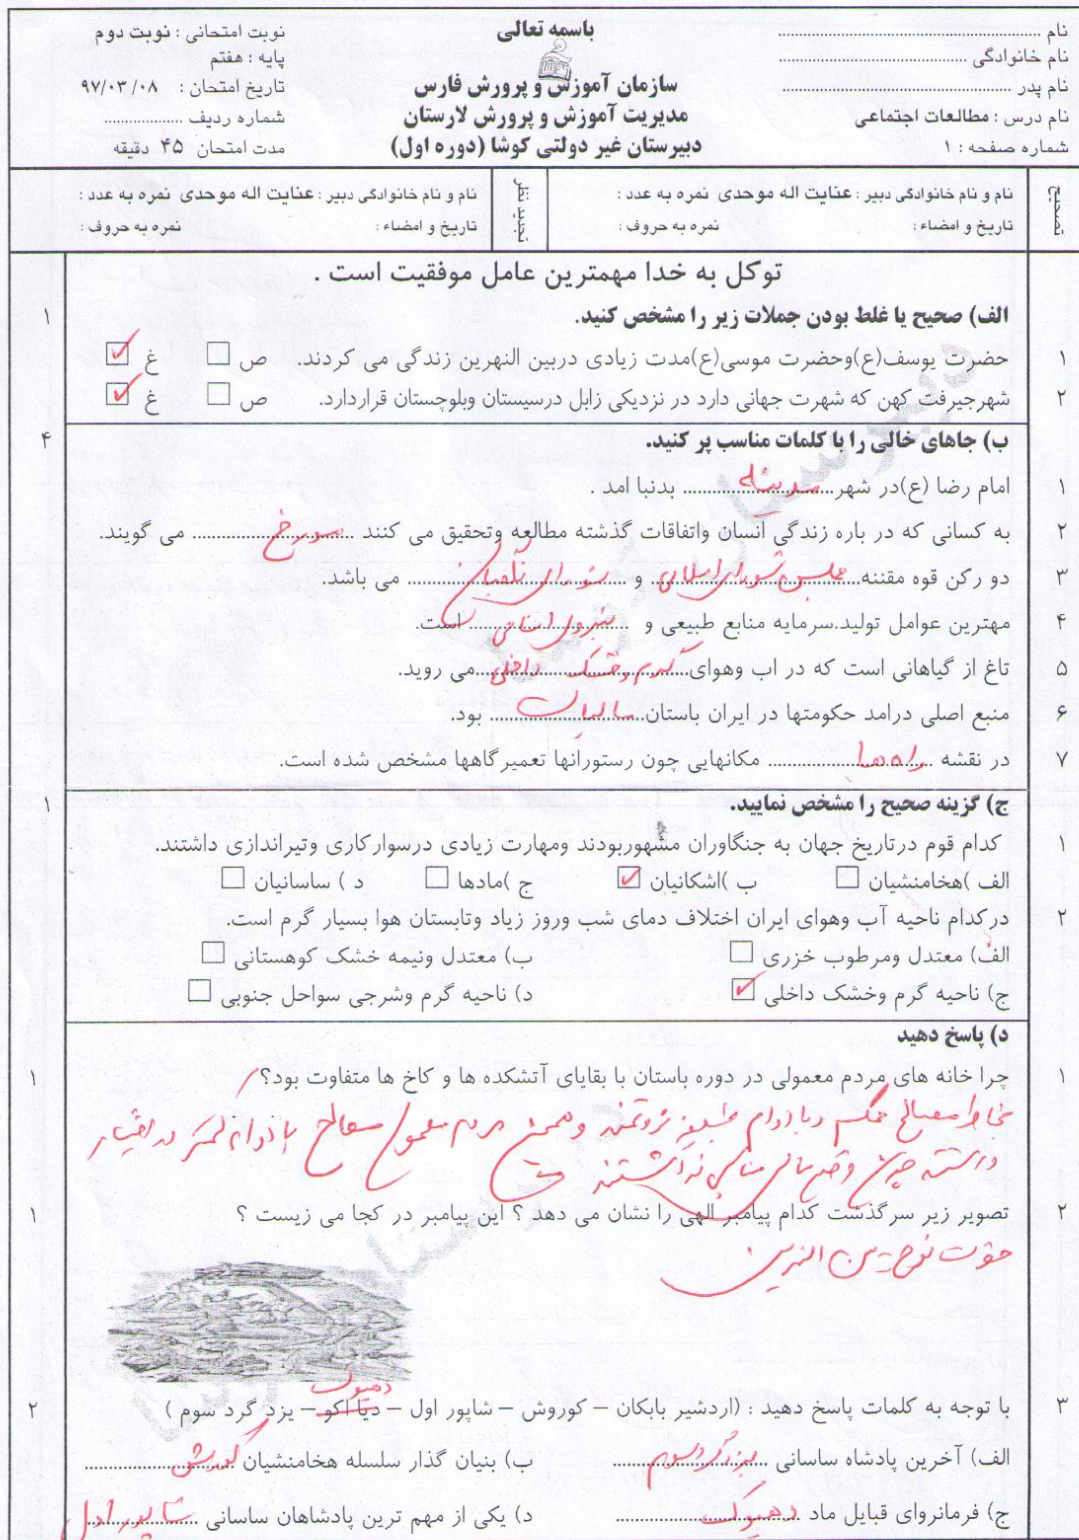 باسمه تعالی
نام
نام خانوادگی
نام پدر
نام درس : مطالعات اجتماعی
شماره صفحه : ۱
سازمان آموزش و پرورش فارس
مدیریت آموزش و پرورش لارستان
دبیرستان غیر دولتی کوشا (دوره اول)
نوبت امتحانی : نوبت دوم
پایه : هفتم
تاریخ امتحان : ۹۷/۰۳/۰۸
شماره ردیف
مدت امتحان ۴۵ دقیقه
تصحیح
نام و نام خانوادگی دبیر : عنایت اله موحدی نمره به عدد :
تاریخ و امضاء : نمره به حروف :
تجدید نظر
نام و نام خانوادگی دبیر : عنایت اله موحدی نمره به عدد :
تاریخ و امضاء : نمره به حروف :
توکل به خدا مهمترین عامل موفقیت است .
الف) صحیح یا غلط بودن جملات زیر را مشخص کنید. ۱
۱ حضرت یوسف(ع)وحضرت موسی(ع)مدت زیادی دربین النهرین زندگی می کردند. ص غ
۲ شهرجیرفت کهن که شهرت جهانی دارد در نزدیکی زابل درسیستان وبلوچستان قراردارد. ص غ
ب) جاهای خالی را با کلمات مناسب پر کنید. ۴
۱ امام رضا (ع)در شهر مدینه بدنبا امد .
۲ به کسانی که در باره زندگی انسان واتفاقات گذشته مطالعه وتحقیق می کنند مورخ می گویند.
۳ دو رکن قوه مقننه مجلس شورای اسلامی و شورای نگهبان می باشد.
۴ مهترین عوامل تولید.سرمایه منابع طبیعی و نیروی انسانی است.
۵ تاغ از گیاهانی است که در اب وهوای گرم وخشک داخلی می روید.
۶ منبع اصلی درامد حکومتها در ایران باستان مالیات بود.
۷ در نقشه راه ها مکانهایی چون رستورانها تعمیرگاهها مشخص شده است.
ج) گزینه صحیح را مشخص نمایید. ۱
۱ کدام قوم درتاریخ جهان به جنگاوران مشهوربودند ومهارت زیادی درسوارکاری وتیراندازی داشتند.
الف )هخامنشیان ب )اشکانیان ج )مادها د ) ساسانیان
۲ درکدام ناحیه آب وهوای ایران اختلاف دمای شب وروز زیاد وتابستان هوا بسیار گرم است.
الف) معتدل ومرطوب خزری ب) معتدل ونیمه خشک کوهستانی
ج) ناحیه گرم وخشک داخلی د) ناحیه گرم وشرجی سواحل جنوبی
د) پاسخ دهید
۱ چرا خانه های مردم معمولی در دوره باستان با بقایای آتشکده ها و کاخ ها متفاوت بود؟ ۱
بخاطر مصالح محکم وبا دوام ثروتمند مردم معمولی مصالح با دوام کمتر در اختیار
داشتند چون وضع مالی مناسبی نداشتند
۲ تصویر زیر سرگذشت کدام پیامبر الهی را نشان می دهد ؟ این پیامبر در کجا می زیست ؟ ۱
حضرت نوح - بین النهرین
دهیوک
۳ با توجه به کلمات پاسخ دهید : (اردشیر بابکان – کوروش – شاپور اول – دیا اکو – یزد گرد سوم ) ۲
الف) آخرین پادشاه ساسانی یزدگرد سوم ب) بنیان گذار سلسله هخامنشیان کوروش
ج) فرمانروای قبایل ماد دهیوک د) یکی از مهم ترین پادشاهان ساسانی شاپور اول